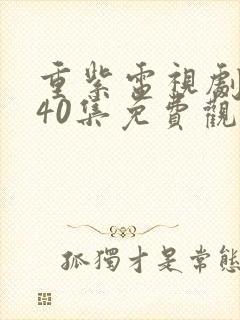 重紫電視劇
40集免費觀
孤獨才是常態